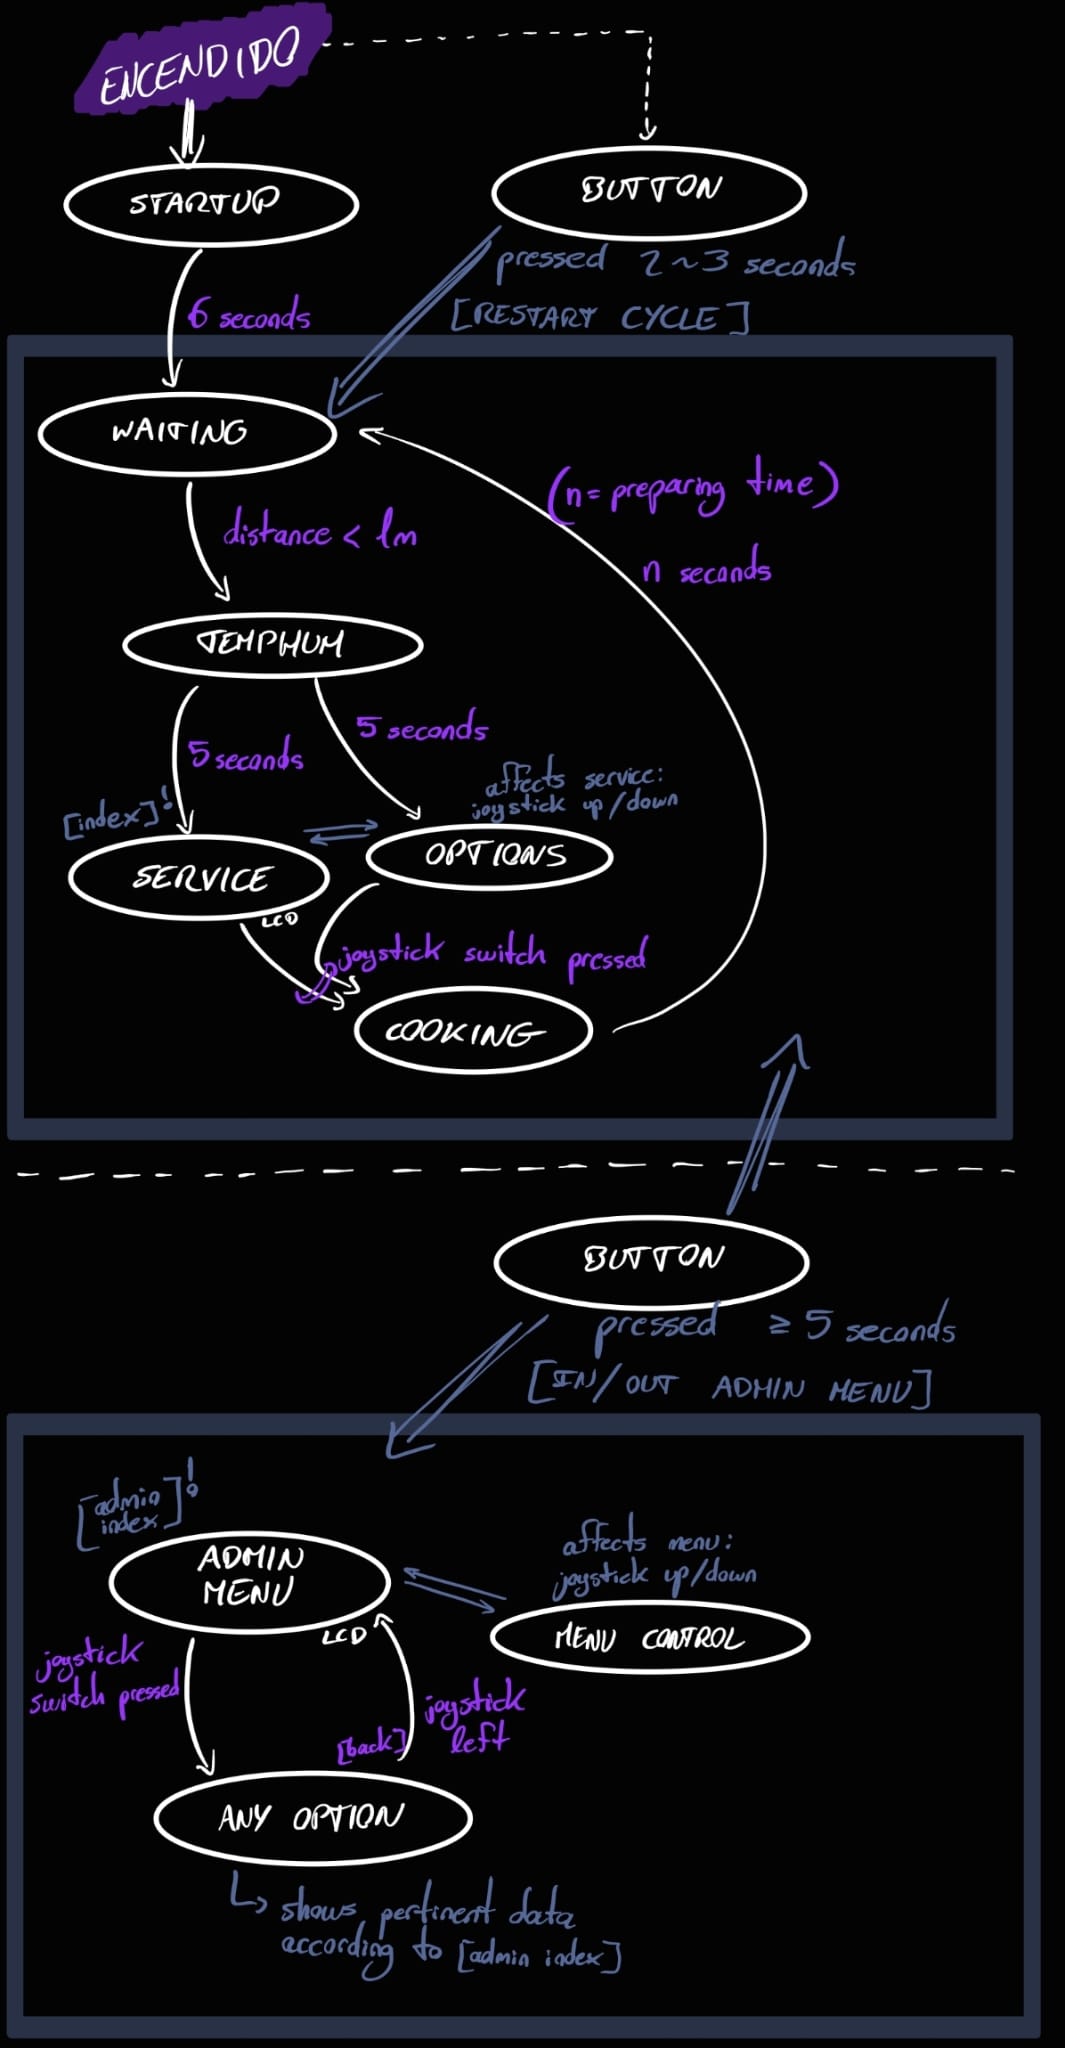 ENCENDIDO
STARTUP
BUTTON
pressed 2~3 seconds
[RESTART CYCLE]
6 seconds
WAITING
(n= preparing time)
n seconds
distance < 1m
TEMPHUM
5 seconds
5 seconds
affects service:
joystick up/down
[index]!
SERVICE
LCD
OPTIONS
joystick switch pressed
COOKING
BUTTON
pressed ≥ 5 seconds
[IN/OUT ADMIN MENU]
[admin
index]!
ADMIN
MENU
LCD
affects menu:
joystick up/down
MENU CONTROL
joystick
switch pressed
joystick
left
[back]
ANY OPTION
↳ shows pertinent data
according to [admin index]